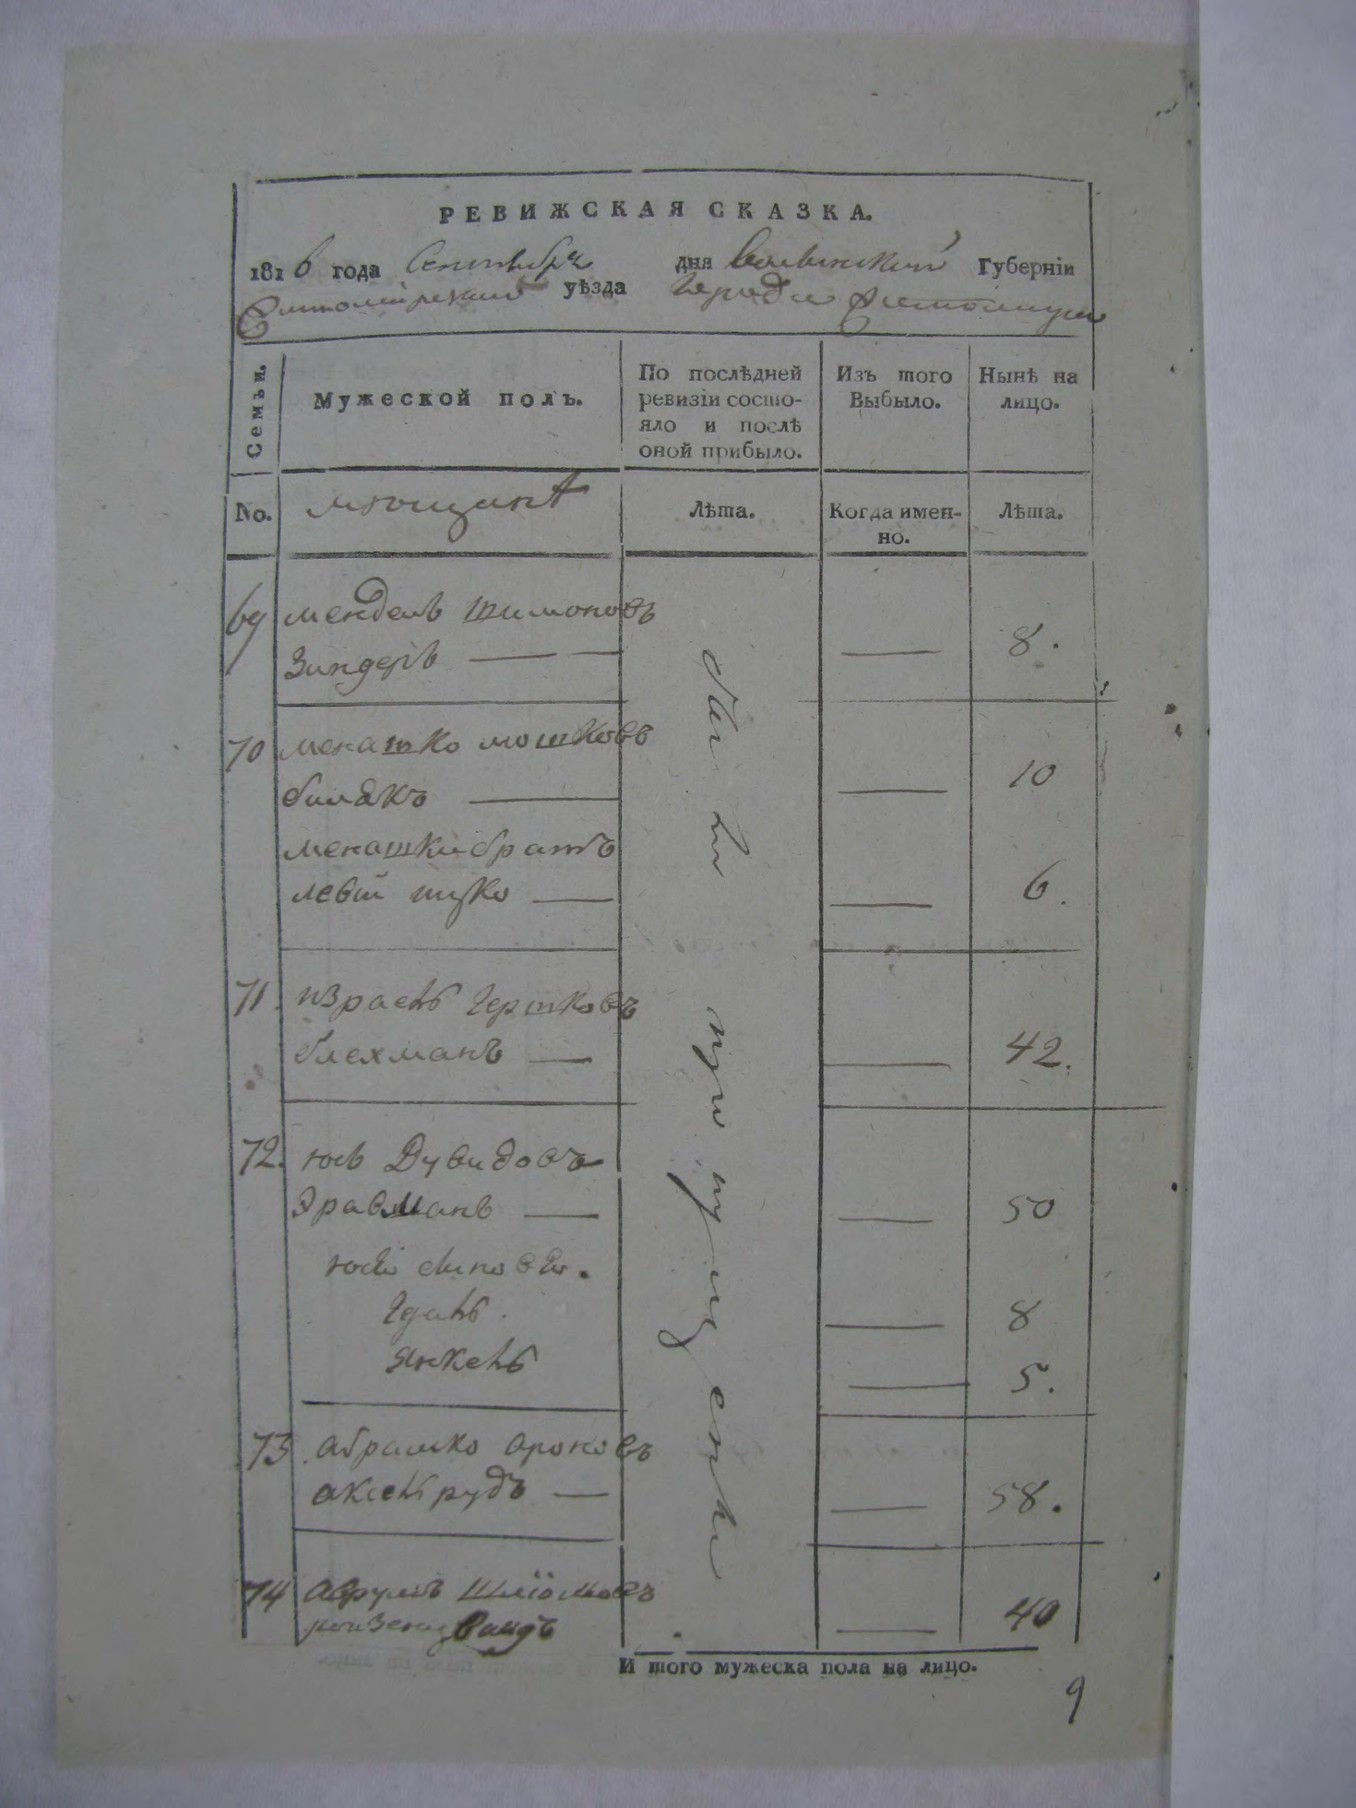 РЕВИЖСКАЯ СКАЗКА.
1816 года Сентября дня Волынской Губерніи
Житомирскаго уѣзда Города Житомира
Семьи.
Мужеской полъ.
По послѣдней ревизіи состо-
яло и послѣ оной прибыло.
Изъ того Выбыло.
Нынѣ на лицо.
No.
мющанѣ
Лѣта.
Когда имен-
но.
Лѣта.
69 мендель шимоновъ
Зингеръ — — — 8.
70 менашко мошковъ
билыкъ — — 10
менашки братъ
левій ицко — — 6.
71. израель Гершковъ
блехманъ — — 42.
72. юсь Дувидовъ
Эравманъ — — 50
юся сыновья.
Идель. — 8
Янкель — 5.
73 абрамко ароновъ
аксельрудъ — — 58.
74 аврумъ Шліомовъ
розенцвейгъ — 40
были пропущены
И того мужеска пола на лицо.
9